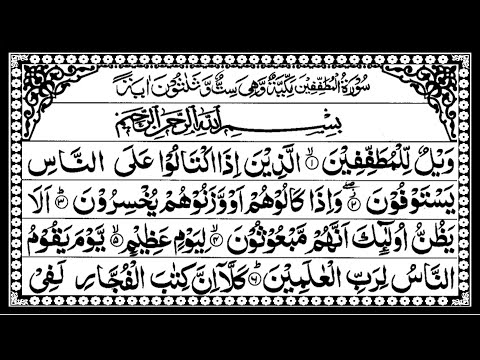 سُوْرَةُ الْمُطَفِّفِيْنَ مَكِّيَّةٌ وَّهِيَ سِتٌّ وَّثَلٰثُوْنَ اٰيَةً
بِسْمِ اللّٰهِ الرَّحْمٰنِ الرَّحِيْمِ
وَيْلٌ لِّلْمُطَفِّفِيْنَ ۙ‏﴿۱﴾ الَّذِيْنَ اِذَا اكْتَالُوْا عَلَى النَّاسِ
يَسْتَوْفُوْنَ ۖ‏﴿۲﴾ وَاِذَا كَالُوْهُمْ اَوْ وَّزَنُوْهُمْ يُخْسِرُوْنَ ؕ‏﴿۳﴾ اَلَا
يَظُنُّ اُولٰٓئِكَ اَنَّهُمْ مَّبْعُوْثُوْنَ ۙ‏﴿۴﴾ لِيَوْمٍ عَظِيْمٍ ۙ‏﴿۵﴾ يَّوْمَ يَقُوْمُ
النَّاسُ لِرَبِّ الْعٰلَمِيْنَ ؕ‏﴿۶﴾ كَلَّاۤ اِنَّ كِتٰبَ الْفُجَّارِ لَفِيْ